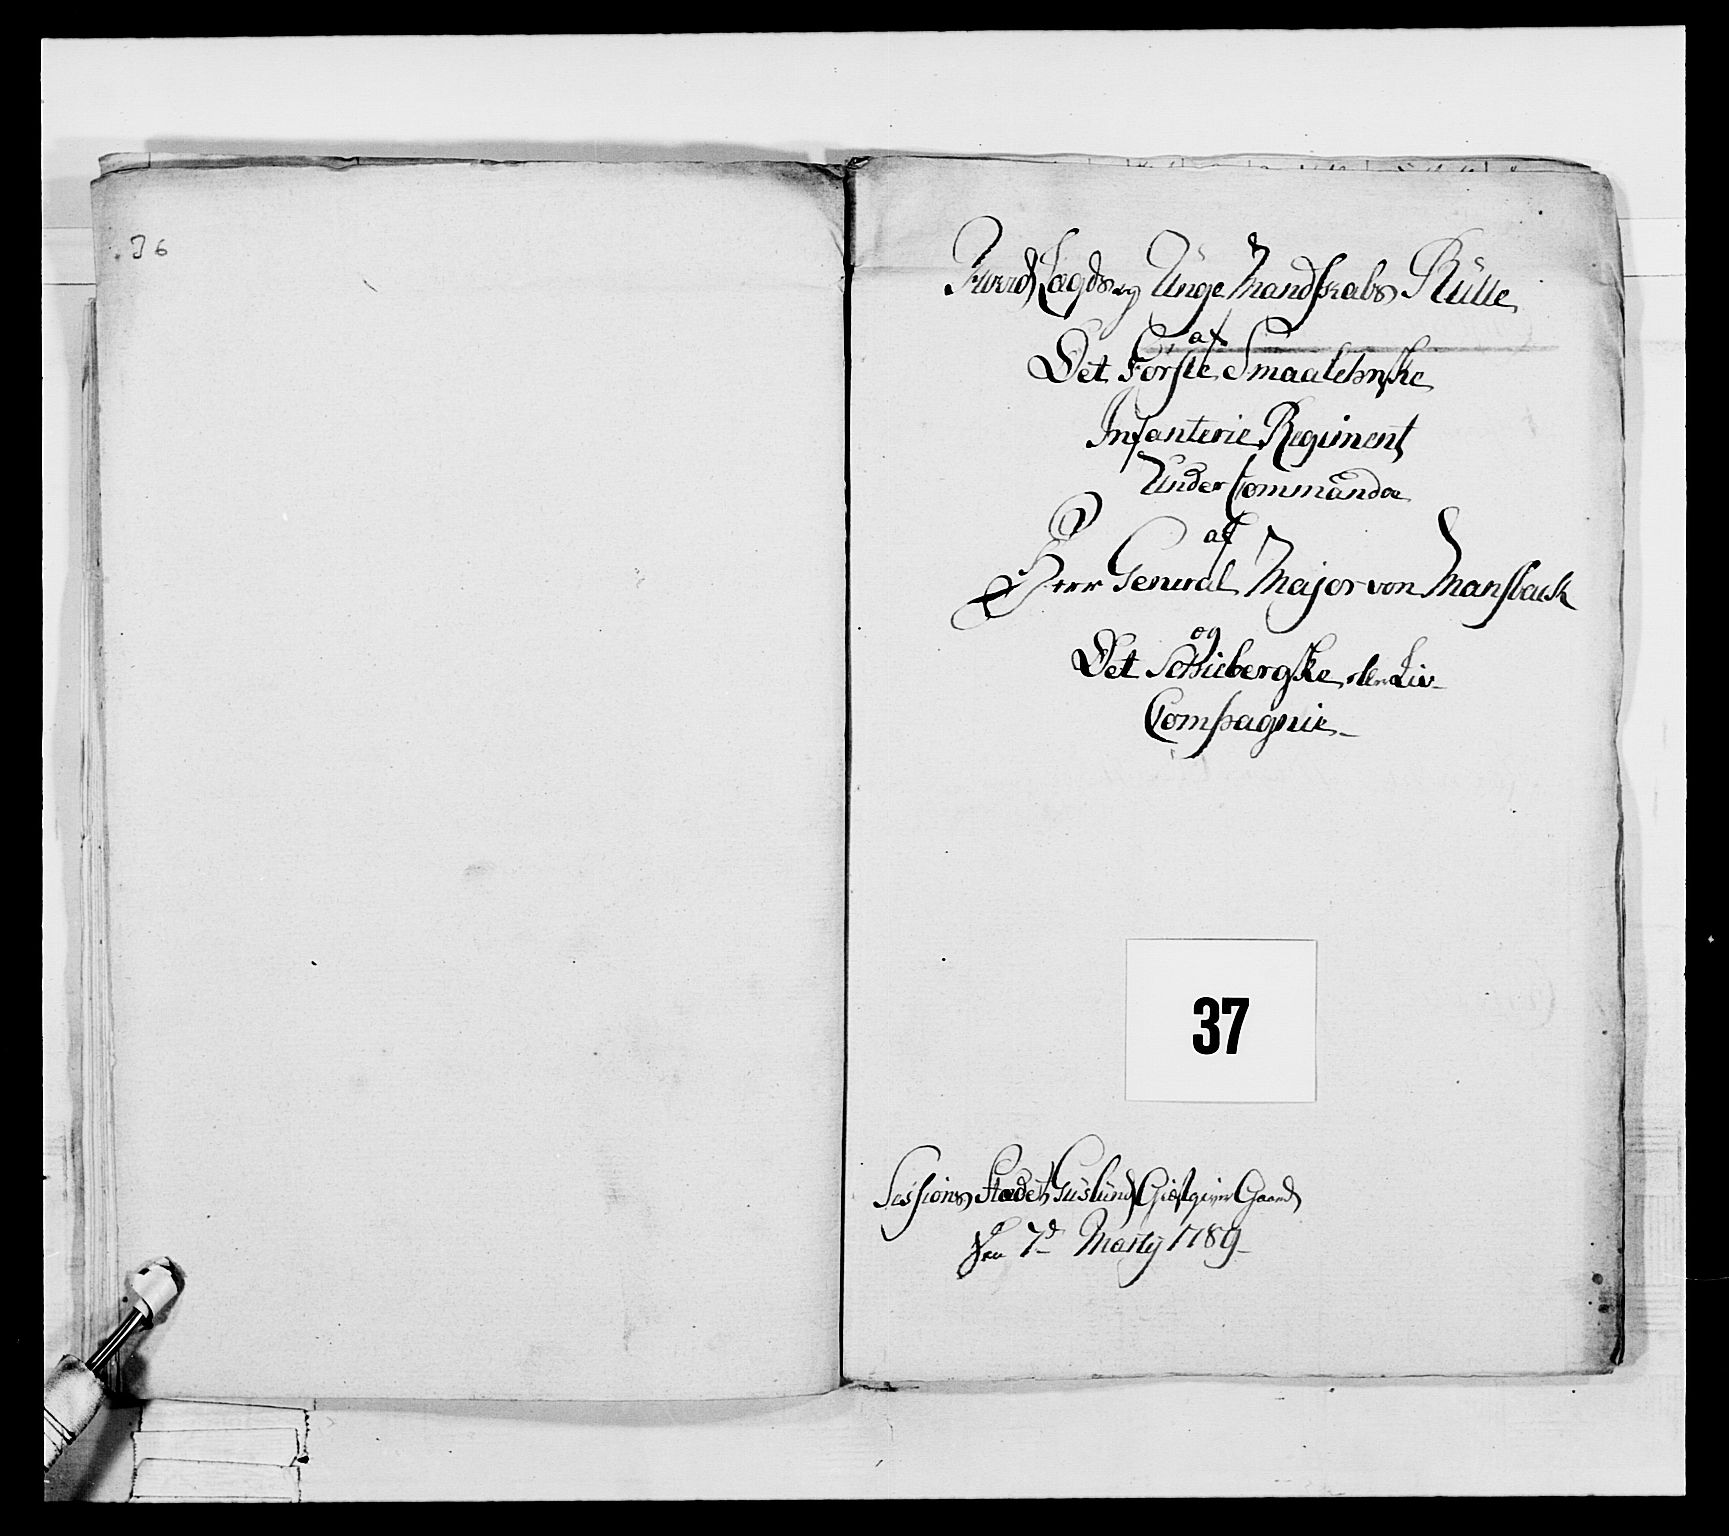 36
Hoved Lægds og Unge Mandskabs Rulle
af
Det Förste Smaalehnske
Infanterie Regiment
Under Commando
af
Herr General Major von Mansback
og
Det Schiebergske eller Liv
Compagnie
37
Sessions Stædet Guslund Giæstgiver Gaard
den 7de Martij 1789